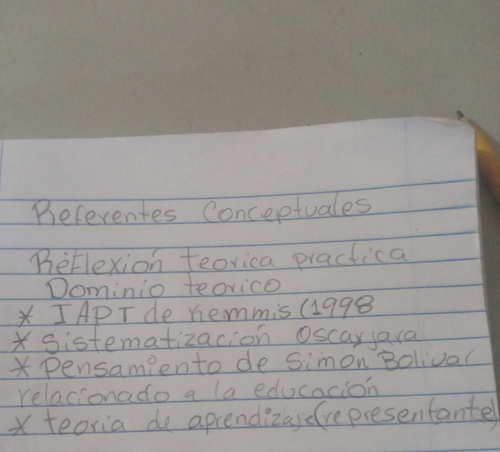 Referentes Conceptuales
Reflexión teorica practica
Dominio teorico
* IAPT de Kemmis (1998
* Sistematización Oscar Jara
* Pensamiento de Simon Bolivar
relacionado a la educación
* teoria de aprendizaje (representante)